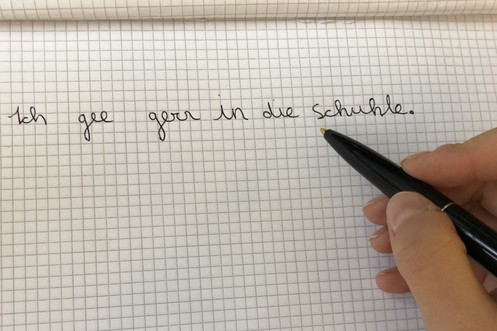 Ich gee gerr in die schuhle.